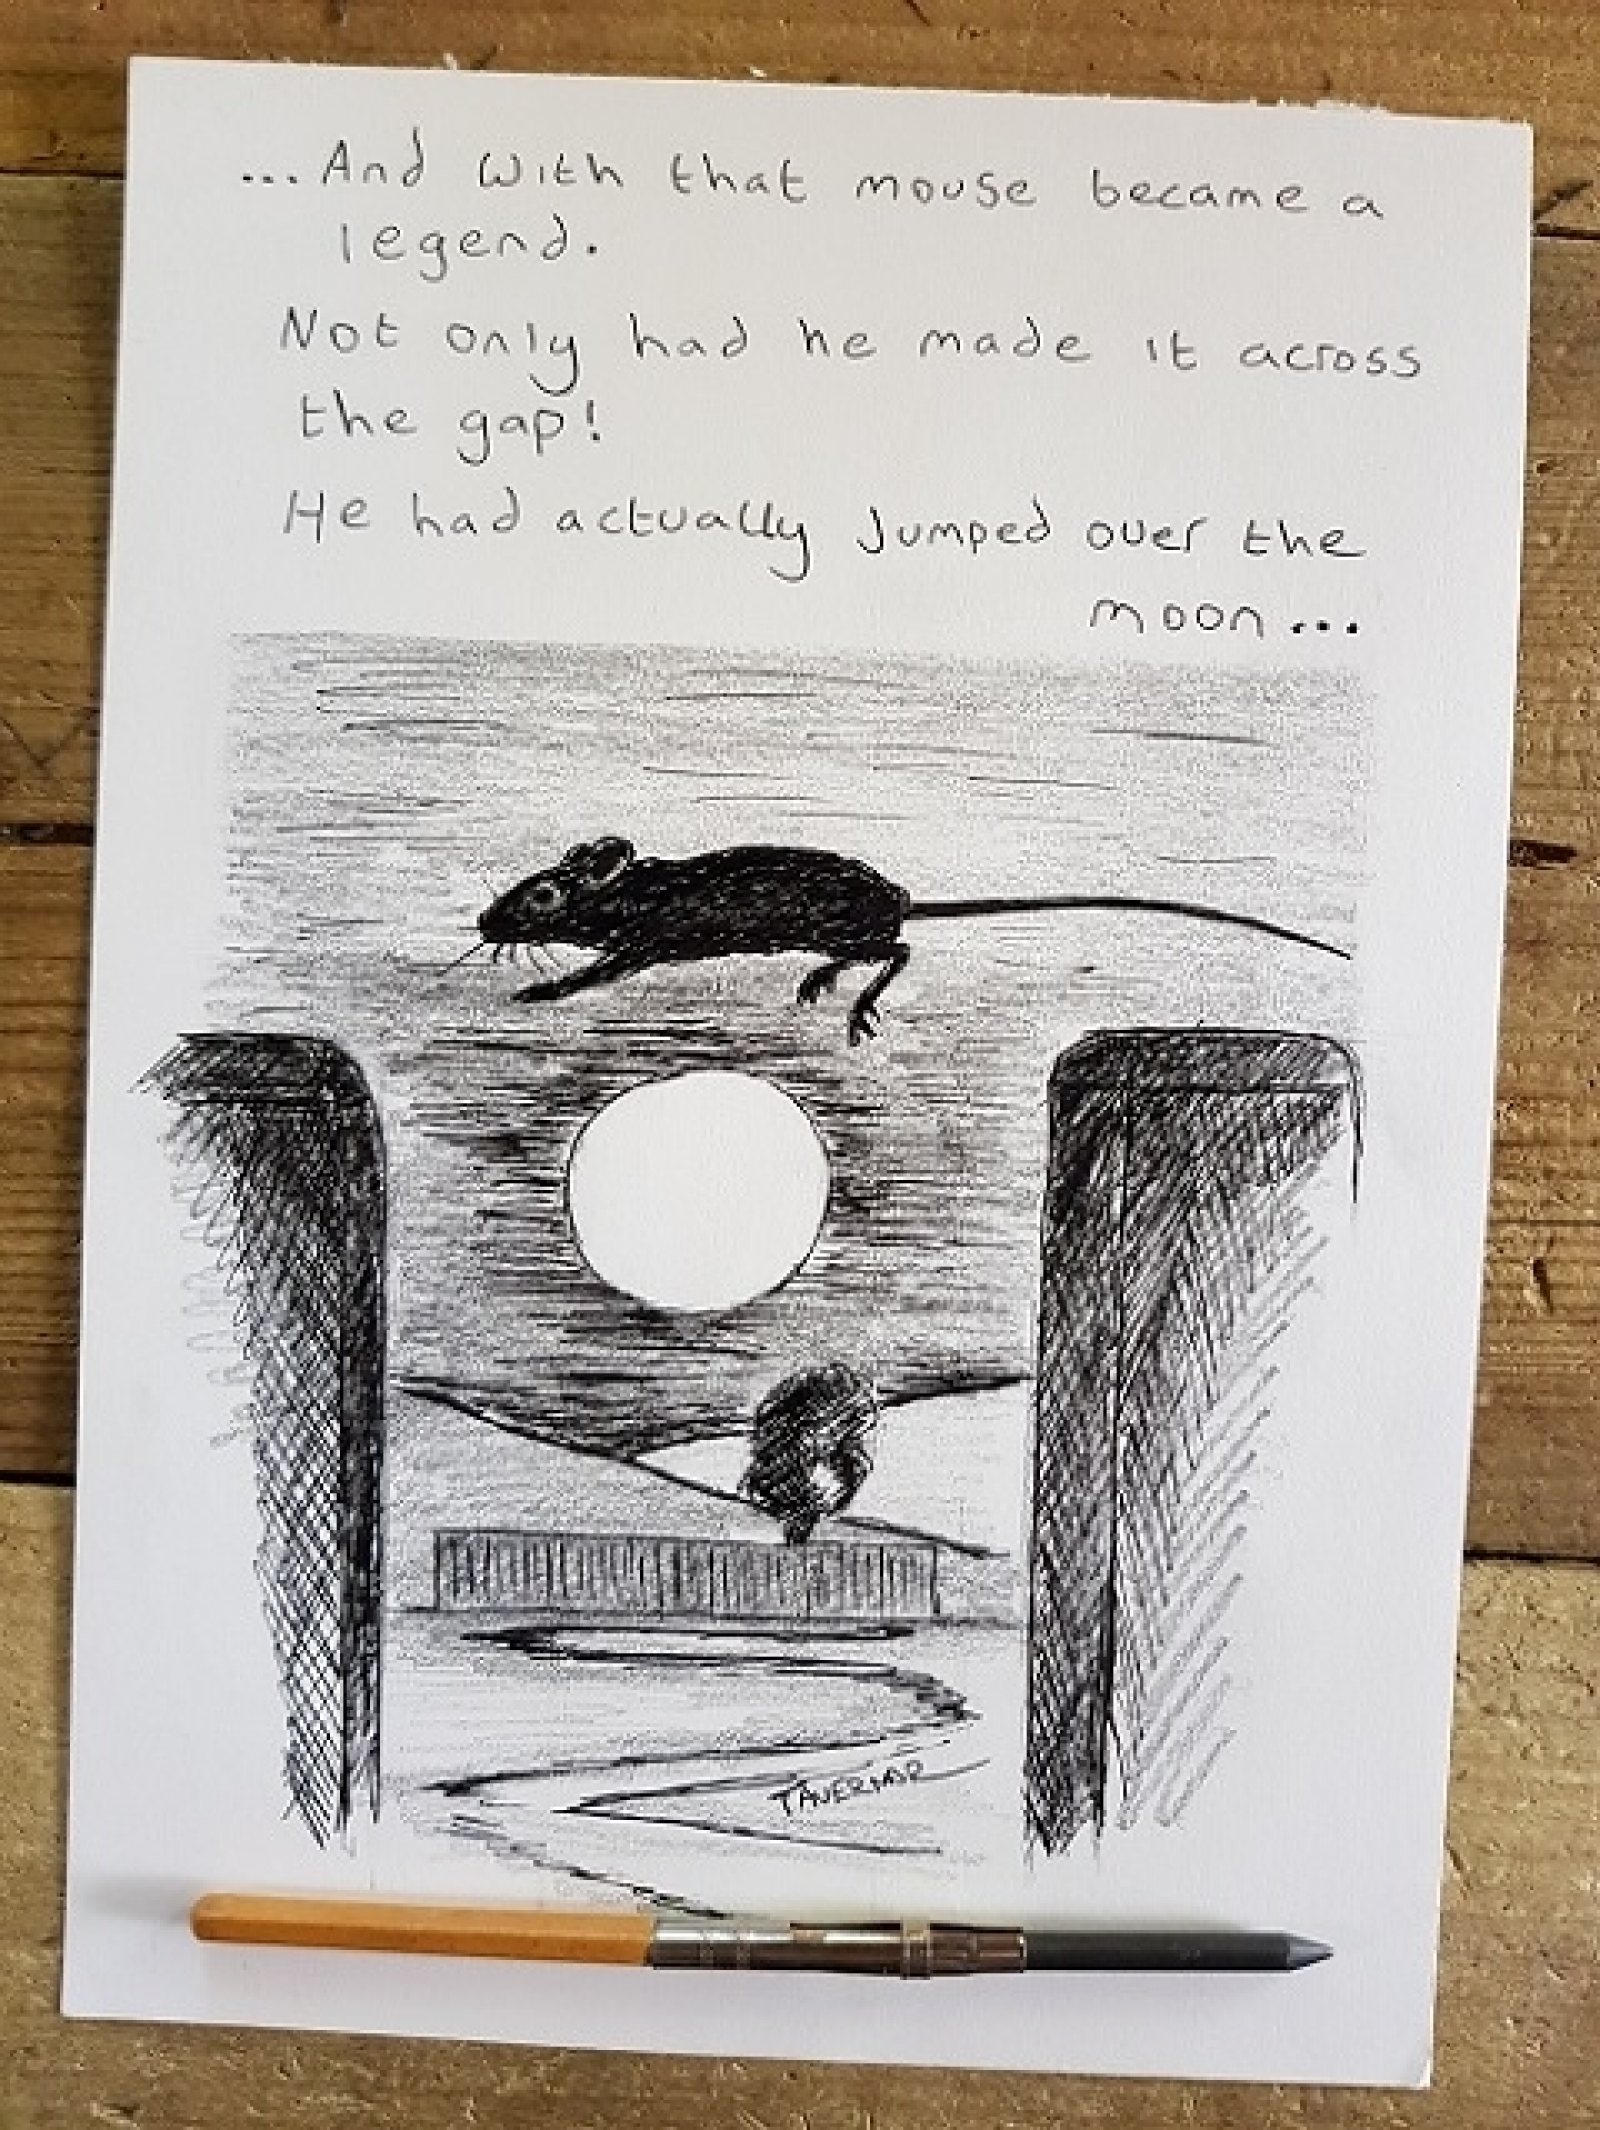 ...And with that mouse became a
legend.
Not only had he made it across
the gap!
He had actually Jumped over the
moon...